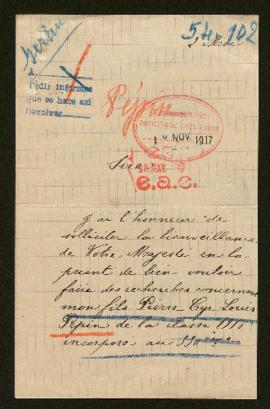 54.102
A
Pedir informes
que se hace así
Devolver
Pépin
NOV 1917
Sire
e.a.c.
J'ai l'honneur de
solliciter la bienveillance
de Votre Majesté en la
priant de bien vouloir
faire des recherches concernant
mon fils Pierre Louis
Pépin de la classe 1910
incorporé au